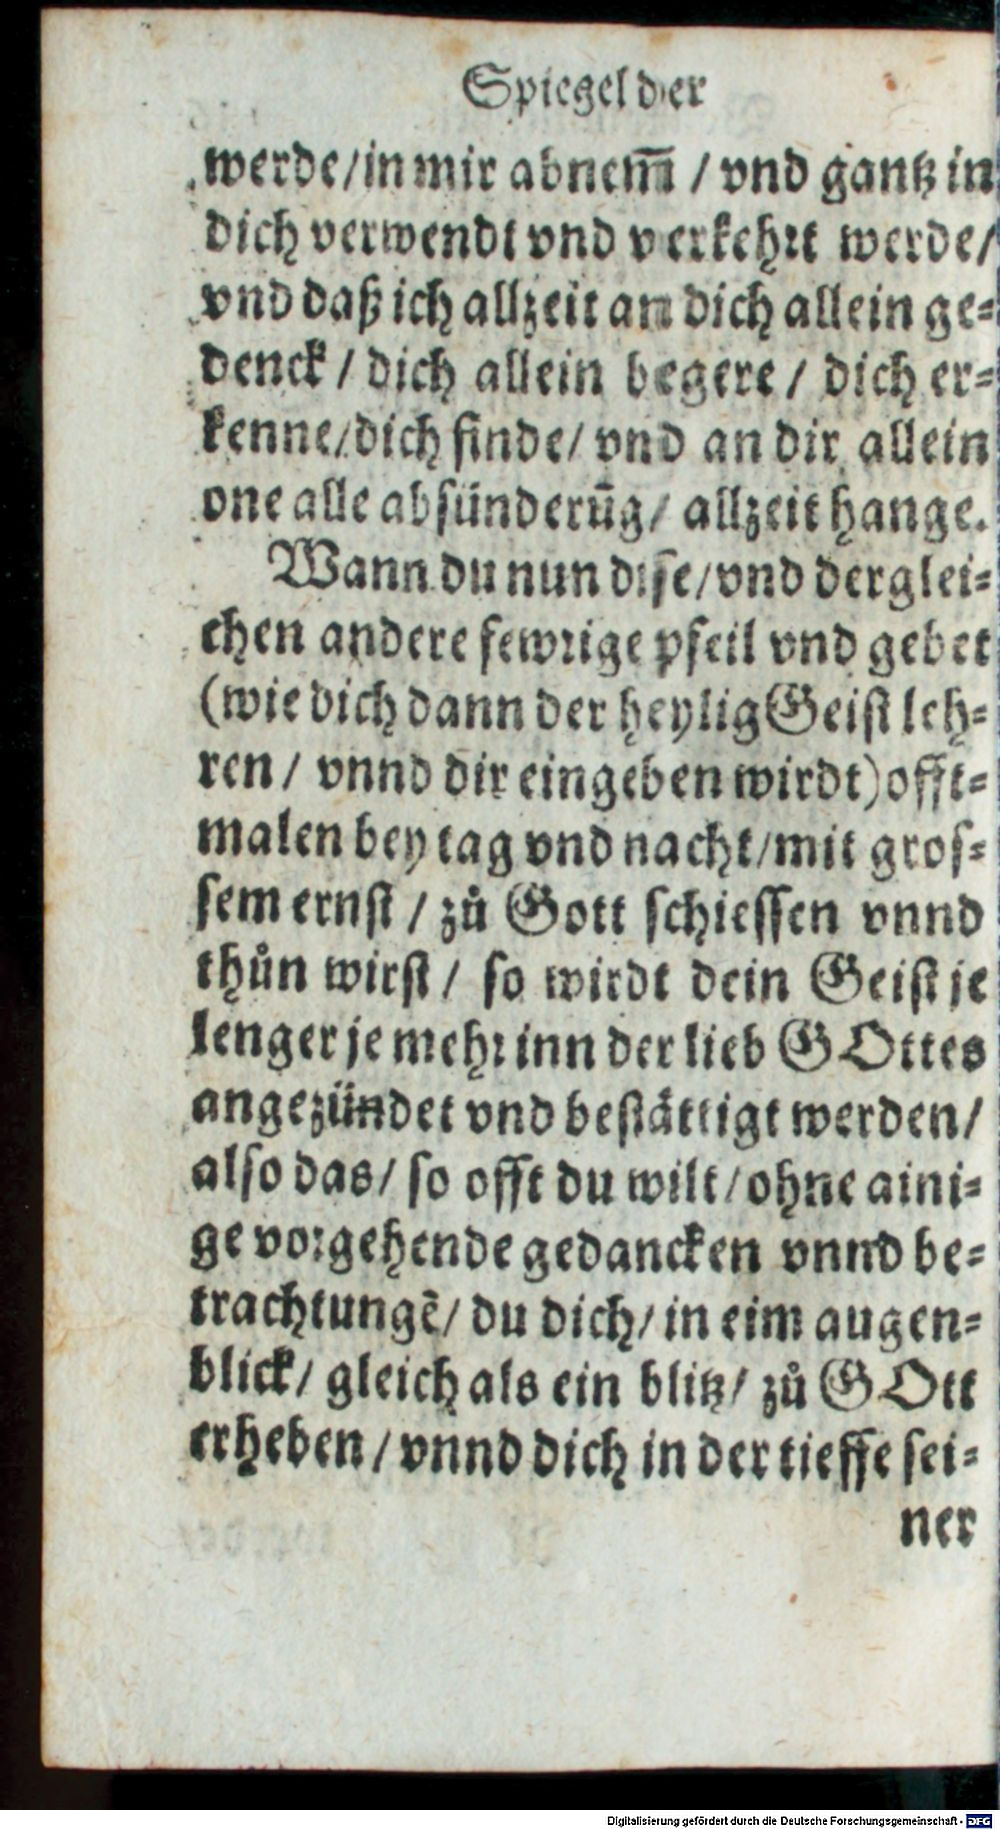 Spiegel der
werde/in mir abnem̄ / vnd gantz in
dich verwendt vnd verkehrt werde/
vnd daß ich allzeit an dich allein ge-
denck / dich allein begere / dich er-
kenne/dich finde/ vnd an dir allein
one alle absünderūg/ allzeit hange.
Wann du nun dise/vnd derglei-
chen andere fewrige pfeil vnd gebet
(wie dich dann der heylig Geist leh-
ren / vnnd dir eingeben wirdt) offt-
malen bey tag vnd nacht/mit gros-
sem ernst / zů Gott schiessen vnnd
thůn wirst / so wirdt dein Geist je
lenger je mehr inn der lieb GOttes
angezündet vnd bestättigt werden/
also das/ so offt du wilt/ohne aini-
ge vorgehende gedancken vnnd be-
trachtungē/ du dich/ in eim augen-
blick/ gleich als ein blitz/ zů GOtt
erheben / vnnd dich in der tieffe sei-
ner
Digitalisierung gefördert durch die Deutsche Forschungsgemeinschaft - DFG